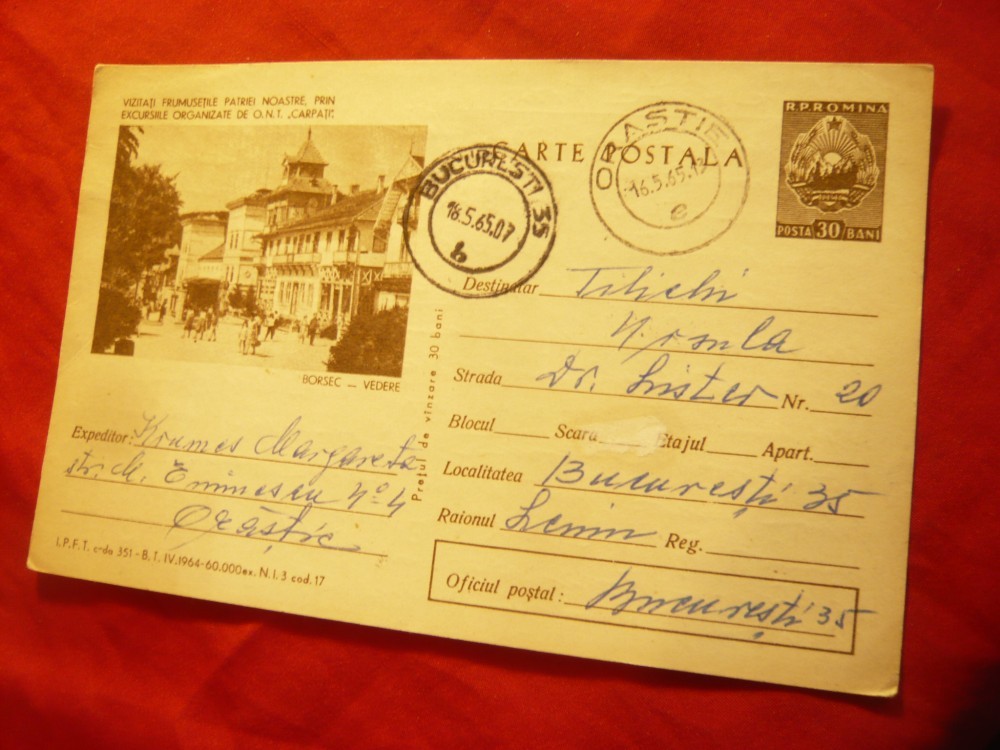 VIZITAȚI FRUMUSEȚILE PATRIEI NOASTRE, PRIN
EXCURSIILE ORGANIZATE DE O.N.T. „CARPAȚI”.
BORSEC — VEDERE
Expeditor: Krumes Margareta
str. M. Eminescu No 4
Orăștie
I.P.F.T. c-da 351-B.T. IV.1964-60.000 ex. N.I.3 cod. 17
Prețul de vînzare 30 bani
CARTE POSTALA
BUCURESTI 35
16.5.65.07
b
ORASTIE
16.5.65.1
e
R.P.ROMINA
POSTA 30 BANI
Destinatar
Ursula
Strada Dr. Lister Nr. 20
Blocul Scara Etajul Apart.
Localitatea București 35
Raionul Lenin Reg.
Oficiul poștal: București 35